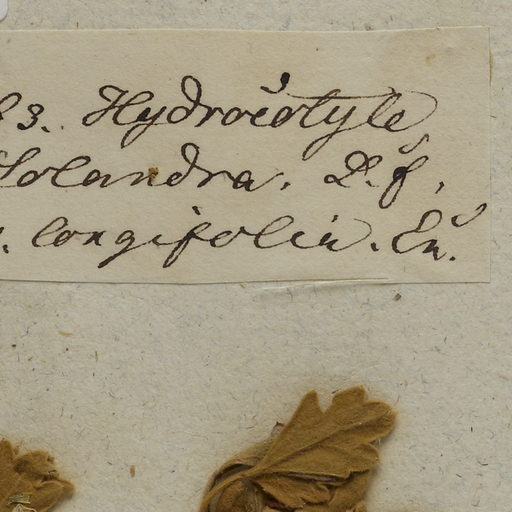 3. Hydrocotyle,
Solandra. L. f.
longifolia. En.